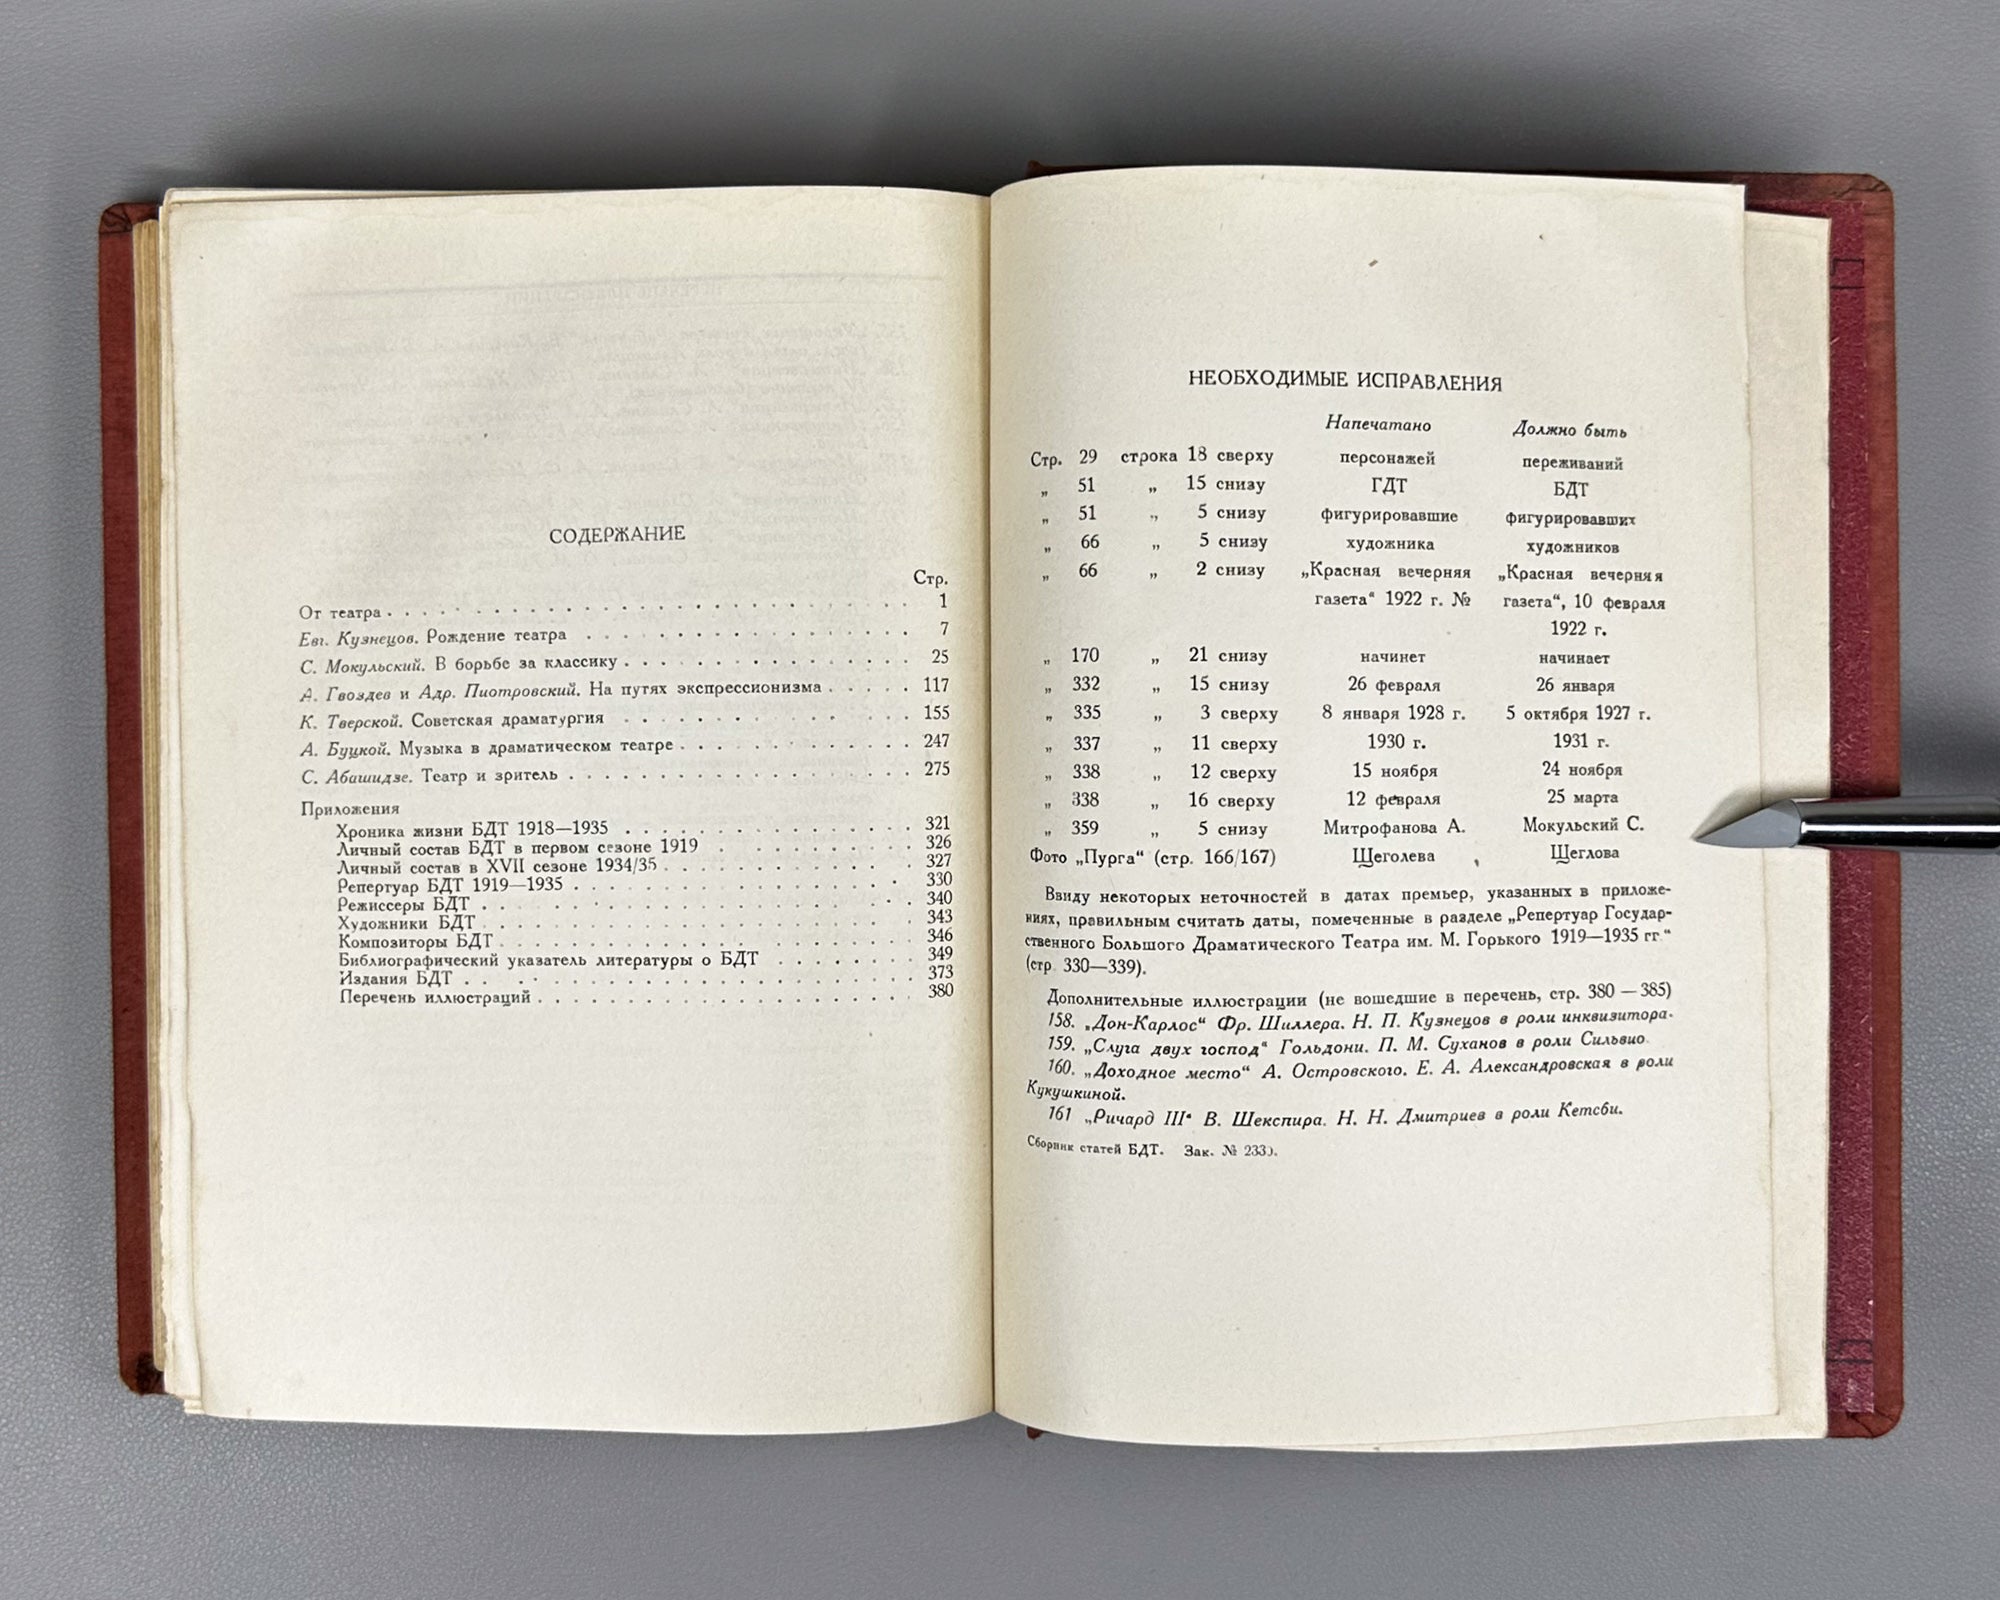 СОДЕРЖАНИЕ
Стр.
От театра 1
Евг. Кузнецов. Рождение театра 7
С. Мокульский. В борьбе за классику 25
А. Гвоздев и Адр. Пиотровский. На путях экспрессионизма 117
К. Тверской. Советская драматургия 155
А. Буцкой. Музыка в драматическом театре 247
С. Абашидзе. Театр и зритель 275
Приложения
Хроника жизни БДТ 1918—1935 321
Личный состав БДТ в первом сезоне 1919 326
Личный состав в XVII сезоне 1934/35 327
Репертуар БДТ 1919—1935 330
Режиссеры БДТ 340
Художники БДТ 343
Композиторы БДТ 346
Библиографический указатель литературы о БДТ 349
Издания БДТ 373
Перечень иллюстраций 380
НЕОБХОДИМЫЕ ИСПРАВЛЕНИЯ
Напечатано Должно быть
Стр. 29 строка 18 сверху персонажей переживаний
„ 51 „ 15 снизу ГДТ БДТ
„ 51 „ 5 снизу фигурировавшие фигурировавших
„ 66 „ 5 снизу художника художников
„ 66 „ 2 снизу „Красная вечерняя „Красная вечерняя
газета“ 1922 г. № газета“, 10 февраля
1922 г.
„ 170 „ 21 снизу начинет начинает
„ 332 „ 15 снизу 26 февраля 26 января
„ 335 „ 3 сверху 8 января 1928 г. 5 октября 1927 г.
„ 337 „ 11 сверху 1930 г. 1931 г.
„ 338 „ 12 сверху 15 ноября 24 ноября
„ 338 „ 16 сверху 12 февраля 25 марта
„ 359 „ 5 снизу Митрофанова А. Мокульский С.
Фото „Пурга“ (стр. 166/167) Щеголева Щеглова
Ввиду некоторых неточностей в датах премьер, указанных в приложе-
ниях, правильным считать даты, помеченные в разделе „Репертуар Государ-
ственного Большого Драматического Театра им. М. Горького 1919—1935 гг.“
(стр. 330—339).
Дополнительные иллюстрации (не вошедшие в перечень, стр. 380—385)
158. „Дон-Карлос“ Фр. Шиллера. Н. П. Кузнецов в роли инквизитора.
159. „Слуга двух господ“ Гольдони. П. М. Суханов в роли Сильвио.
160. „Доходное место“ А. Островского. Е. А. Александровская в роли
Кукушкиной.
161 „Ричард III“ В. Шекспира. Н. Н. Дмитриев в роли Кетсби.
Сборник статей БДТ. Зак. №